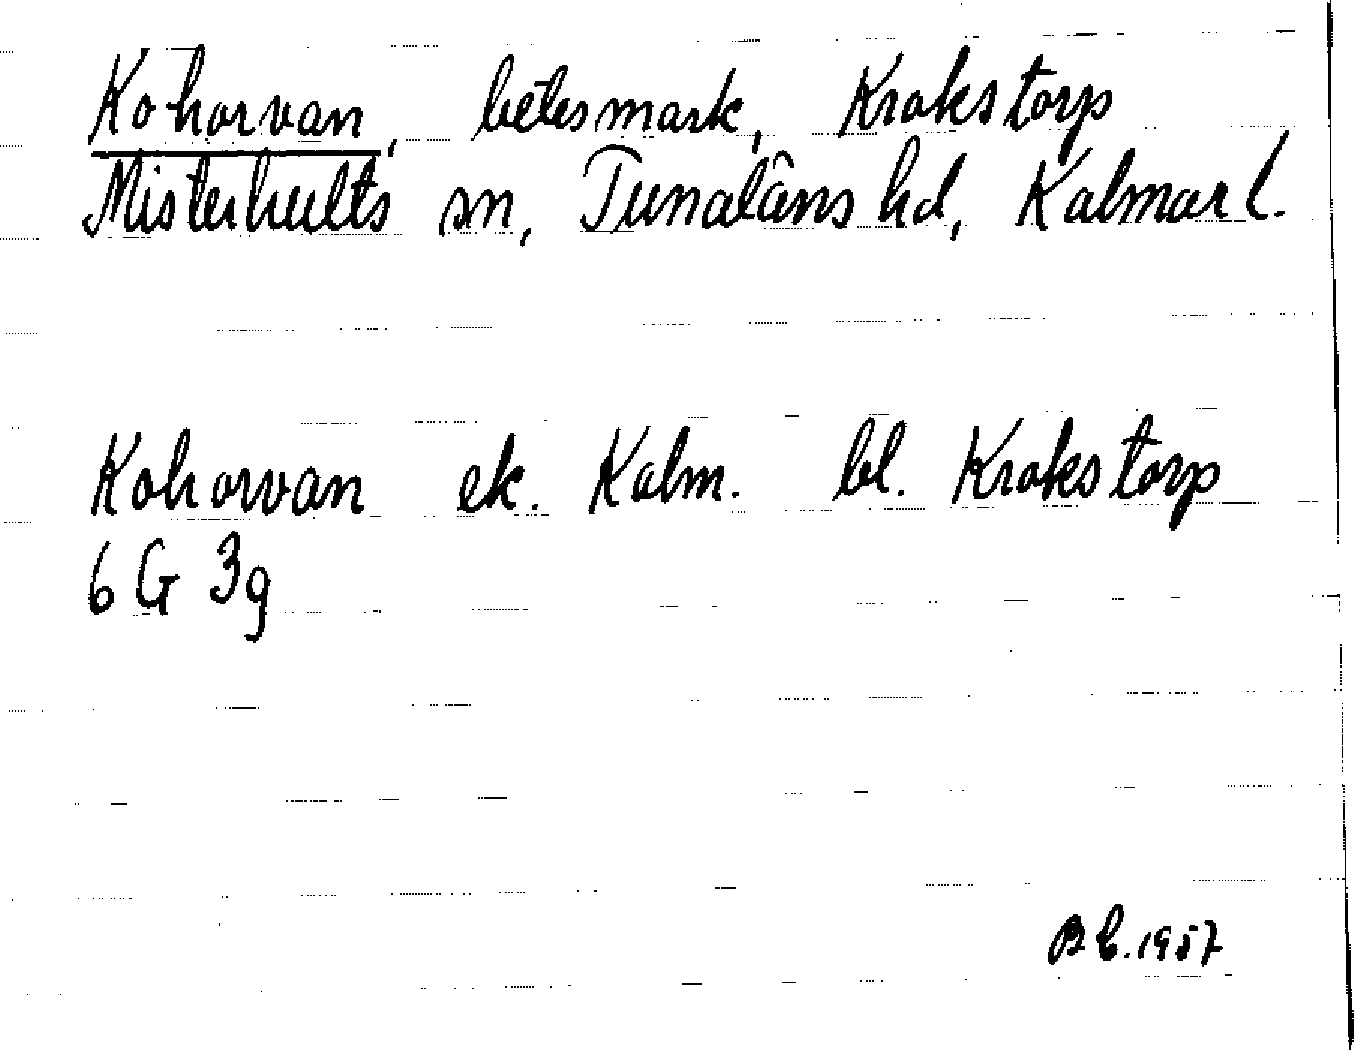 Kohorvan, betesmark, Krokstorp
Misterhults sn, Tunaläns hd, Kalmar l.
Kohorvan ek. Kalm. bl. Krokstorp
6 G 3g
1957